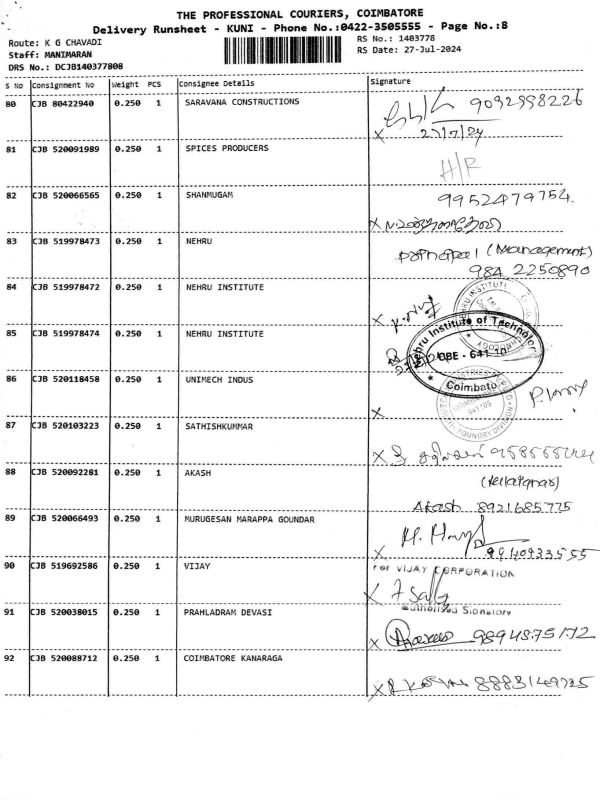 THE PROFESSIONAL COURIERS, COIMBATORE
Delivery Runsheet - KUNI - Phone No.:0422-3505555 - Page No.:8
Route: K G CHAVADI
RS No.: 1403778
Staff: MANIMARAN
RS Date: 27-Jul-2024
DRS No.: DCJB140377808
S No Consignment No Weight PCS Consignee Details Signature
80 CJB 80422940 0.250 1 SARAVANA CONSTRUCTIONS
X 27/7/24
81 CJB 520091989 0.250 1 SPICES PRODUCERS
H/R
82 CJB 520066565 0.250 1 SHANMUGAM 9952479754
X
83 CJB 519978473 0.250 1 NEHRU
(Management)
984 2250890
84 CJB 519978472 0.250 1 NEHRU INSTITUTE
X
85 CJB 519978474 0.250 1 NEHRU INSTITUTE
Nehru Institute of Technology
CBE - 641 10
Coimbato
86 CJB 520118458 0.250 1 UNIMECH INDUS
X
FOUNDRY DIVISION
87 CJB 520103223 0.250 1 SATHISHKUMMAR
X
88 CJB 520092281 0.250 1 AKASH
Akash 8921685775
89 CJB 520066493 0.250 1 MURUGESAN MARAPPA GOUNDAR
X 9940933555
90 CJB 519692586 0.250 1 VIJAY
For VIJAY CORPORATION
X
Authorised Signatory
91 CJB 520038015 0.250 1 PRAHLADRAM DEVASI
X 9894875172
92 CJB 520088712 0.250 1 COIMBATORE KANARAGA
X 8883149725